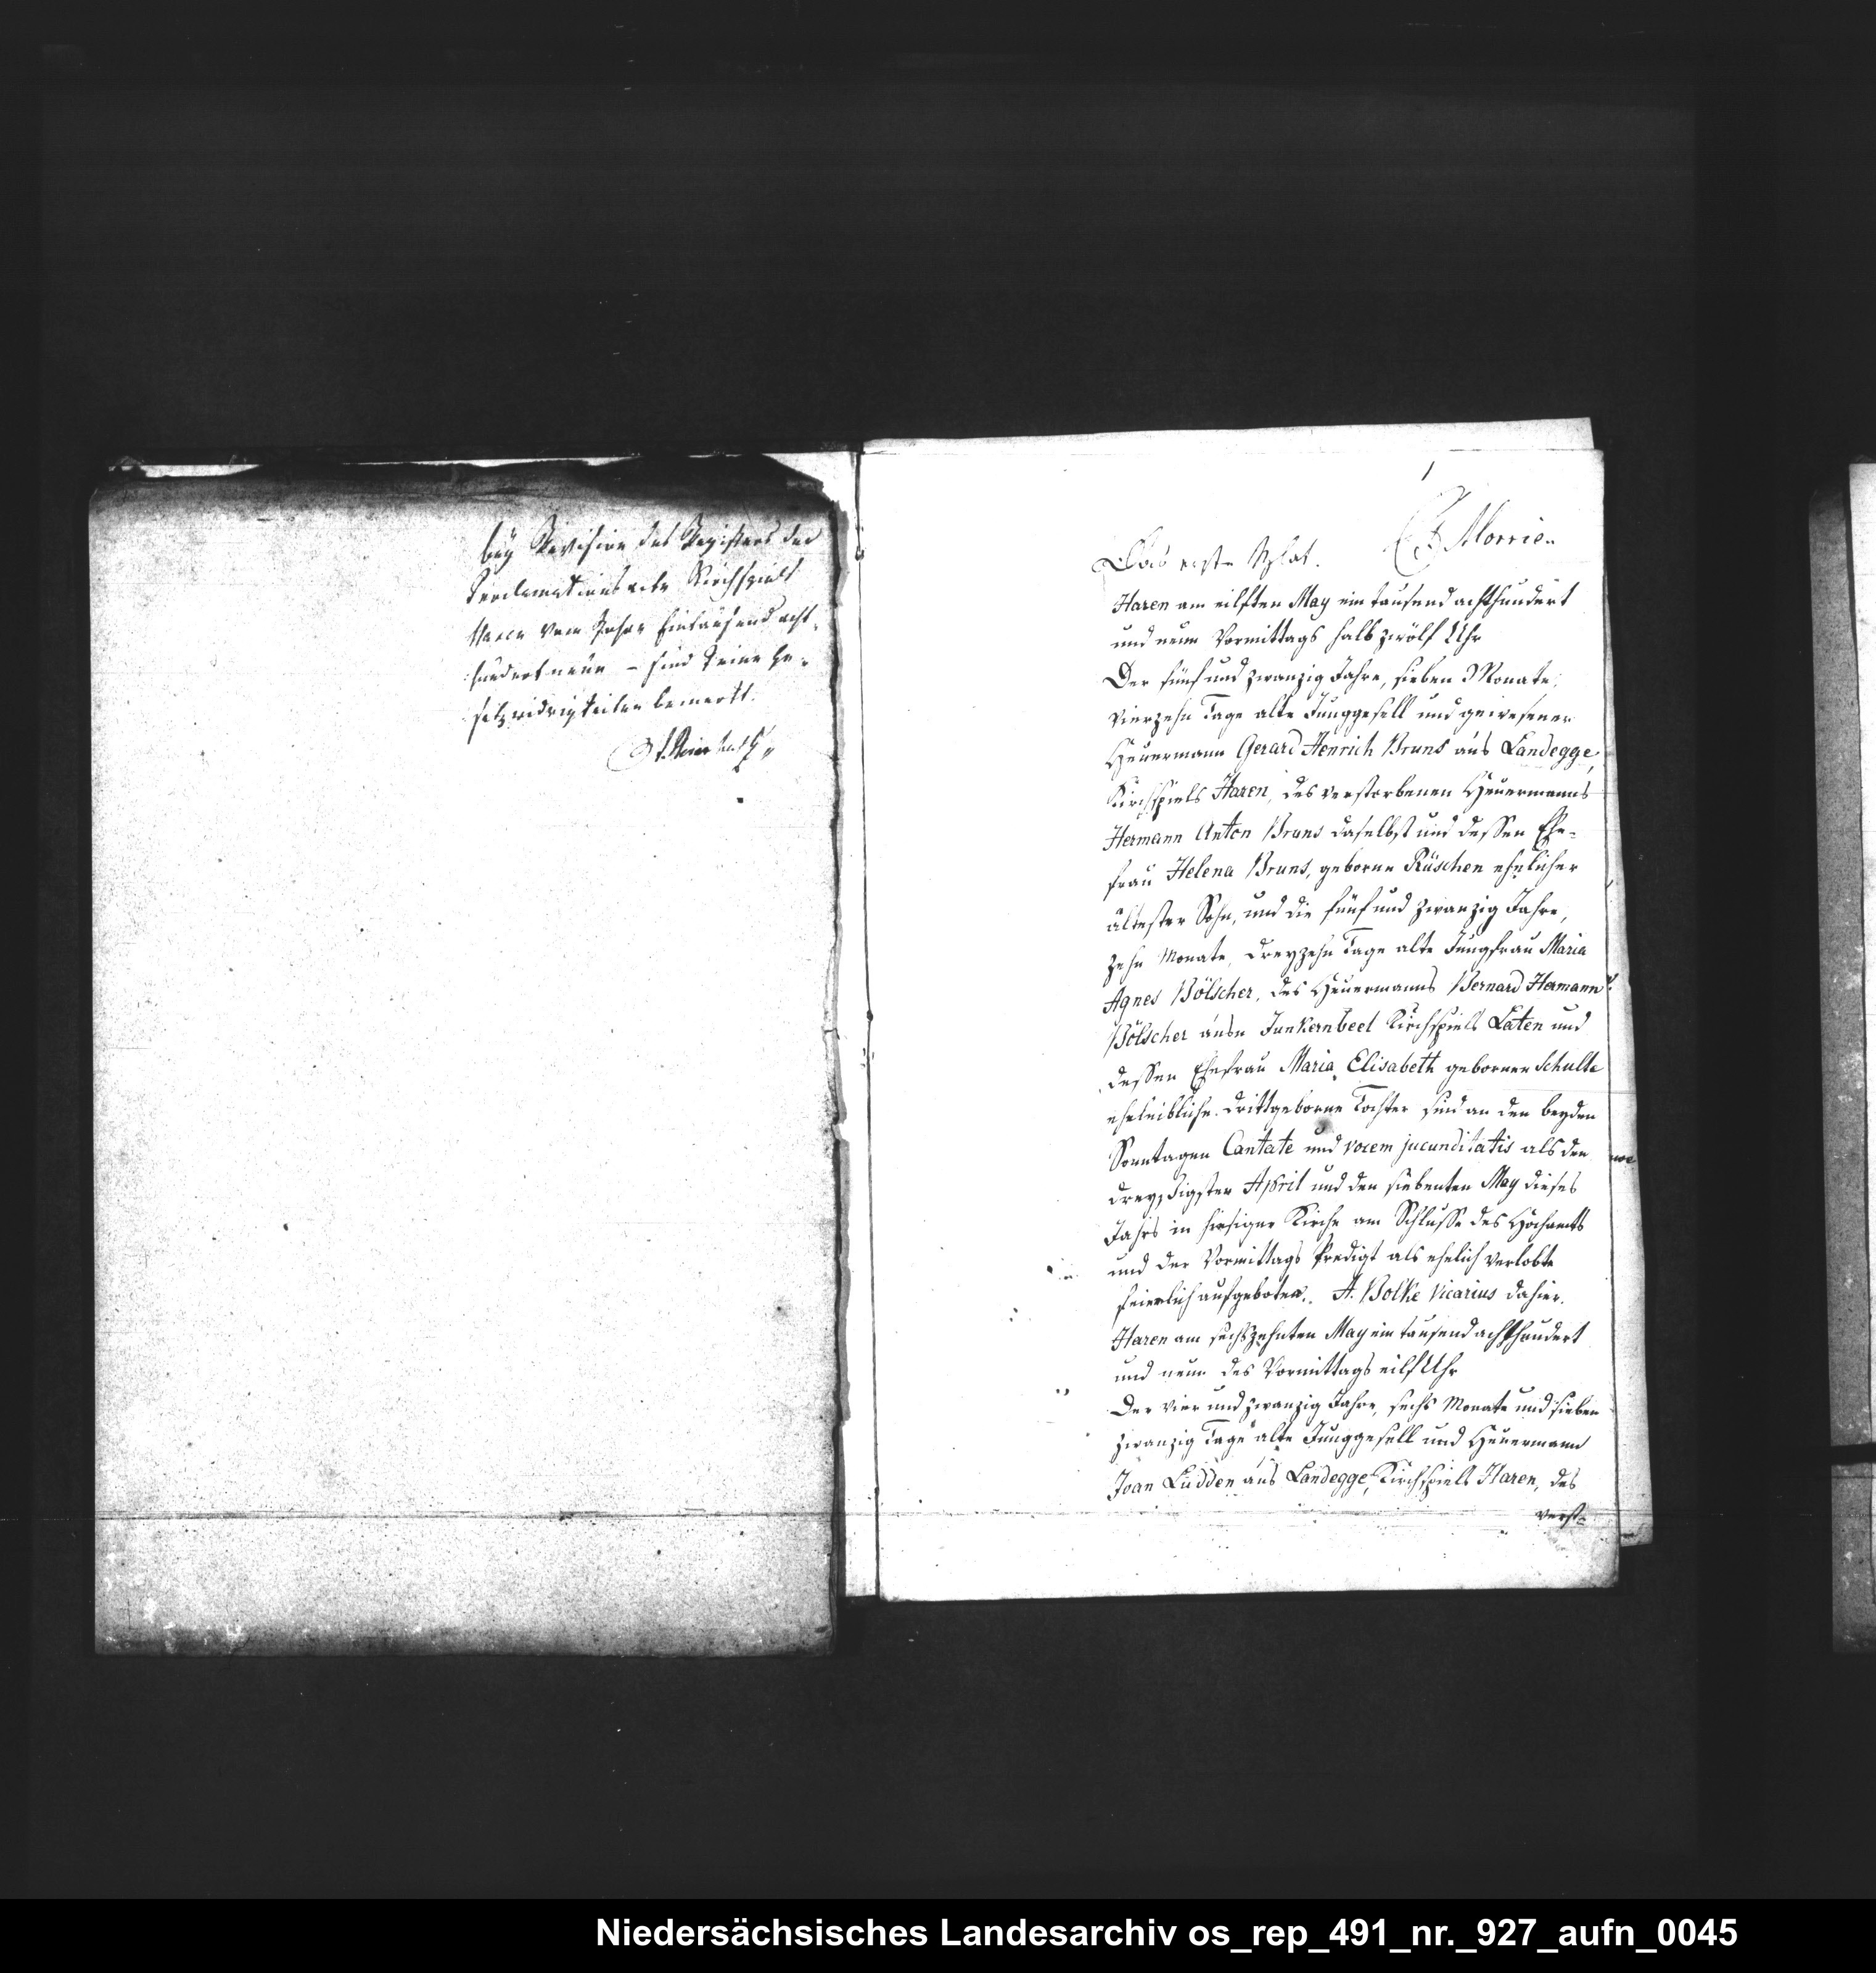 bey Revision des Registers der
Proclamationsacte Kirchspiels
Haren vom Jahre Eintausend acht-
hundert neun - sind keine Ge-
setzwidrigkeiten bemerkt.
1
Morrien
Das erste Blat.
Haren am eilften May ein tausend achthundert
und neun Vormittags halb zwölf Uhr
Der fünf und zwanzig Jahre, sieben Monate,
vierzehn Tage alte Junggesell und gewesener
Heuermann Gerard Henrich Bruns aus Landegge,
Kirchspiels Haren, des verstorbenen Heuermanns
Hermann Anton Bruns daselbst und dessen Ehe-
frau Helena Bruns, geborne Rüschen ehelicher
ältester Sohn, und die fünf und zwanzig Jahre,
zehn Monate, dreyzehn Tage alte Jungfrau Maria
Agnes Bölscher, des Heuermanns Bernard Hermann
Bölscher ausn Junkernbeel Kirchspiels Laten und
dessen Ehefrau Maria Elisabeth geborner Schulte
eheleibliche drittgeborne Tochter sind an den beyden
Sonntagen Cantate und vocem jucunditatis als den
dreyzsigsten April und den siebenten May dieses
Jahrs in hiesiger Kirche am Schlusse des Hochamts
und der Vormittags Predigt als ehelich verlobte
feierlich aufgeboten. A. Bolke Vicarius dahier.
Haren am sechszehnten May ein tausend achthundert
und neun des Vormittags eilf Uhr
Der vier und zwanzig Jahre, sechs Monate und sieben
zwanzig Tage alte Junggesell und Heuermann
Joan Lüdden aus Landegge, Kirchspiels Haren, des
verst-
Niedersächsisches Landesarchiv os_rep_491_nr._927_aufn_0045